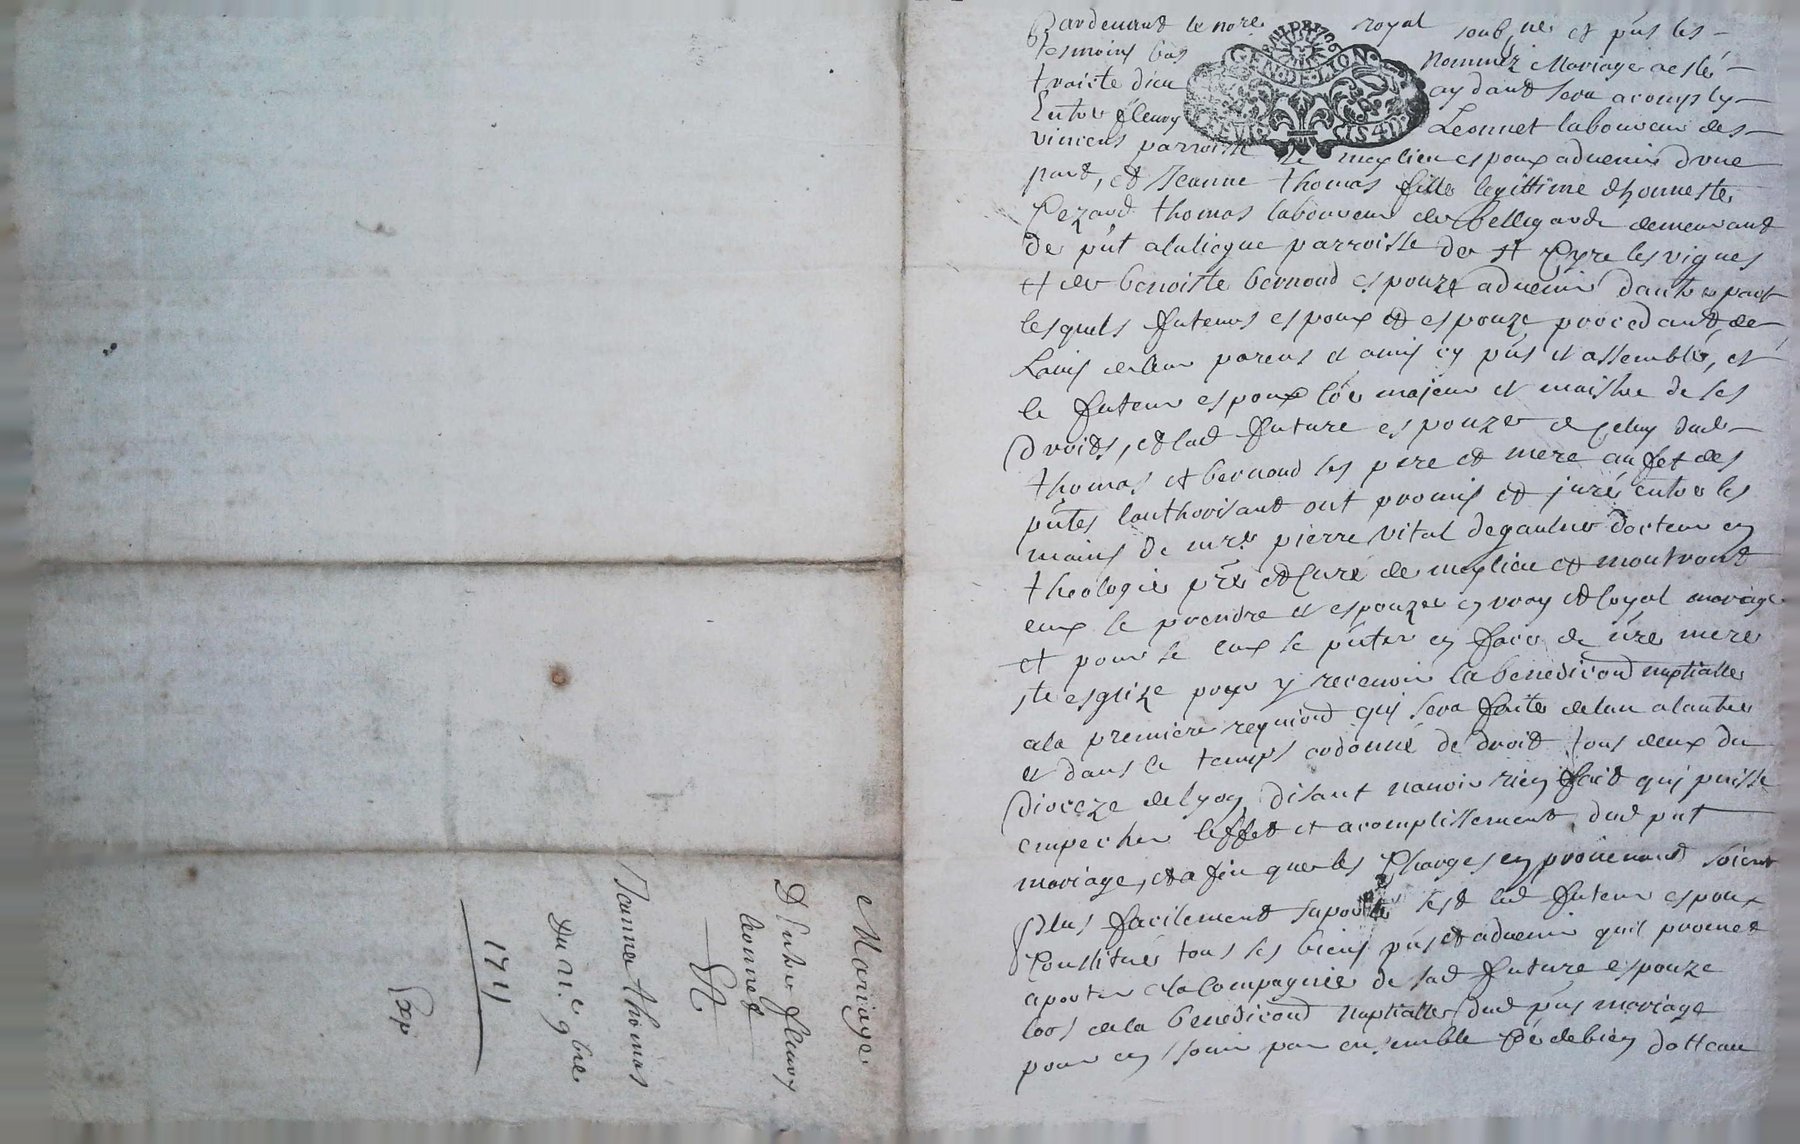 Pardevant le nore royal soub.né et pñs les
tesmoins bas nommez Mariage a esté
traicté dieu aydant sera acomply
Entre fleury Leonnet laboureur des
viniens parroisse de meylieu espoux advenir dune
part, et Jeanne thomas fille legittime dhonneste
Cezard thomas laboureur de bellegarde demeurant
de pñt alalieque parroisse de st Cyre les vignes
et de benoiste bernoud espouze advenir dautre part
lesquels futeurs espoux et espouze procedant de
Lavis deleur parens et amis cy pñs et assemblés, et
le futeur espoux coe majeur et maistre de ses
droits, et lad future espouze de celuy desd
thomas et bernoud ses pere et mere au fet des
pñtes lauthorisant ont promis et juré entre les
mains de mre pierre vital degaulne docteur en
theologie pre et Curé de meylieu et montrond
eux se prendre et espouzer en vray et loyal mariage
et pour ce eux se pñter en face de nre mere
ste esglize pour y recevoir la benediction nuptialle
ala premiere requiond qui sera faite delun alautre
et dans le temps ordonné de droit tous deux du
dioceze delyon, disant navoir rien fait qui puisse
empecher leffet et acomplissement dud pñt
mariage, et a fin que les Charges en provenant soient
Plus facilement suporté sest led futeur espoux
Constitué tous ses biens pñs et advenir quil promet
aporter ala Compagnie de sad future espouze
lors dela benediciond nuptialle dud pñs mariage
pour en jouir par ensemble Coe de bien dotteau
GEN. DE LION
Mariage
D'Entre fleury
leonnet
Et
Jeanne thomas
Du 11.e 9bre
1711
Exp